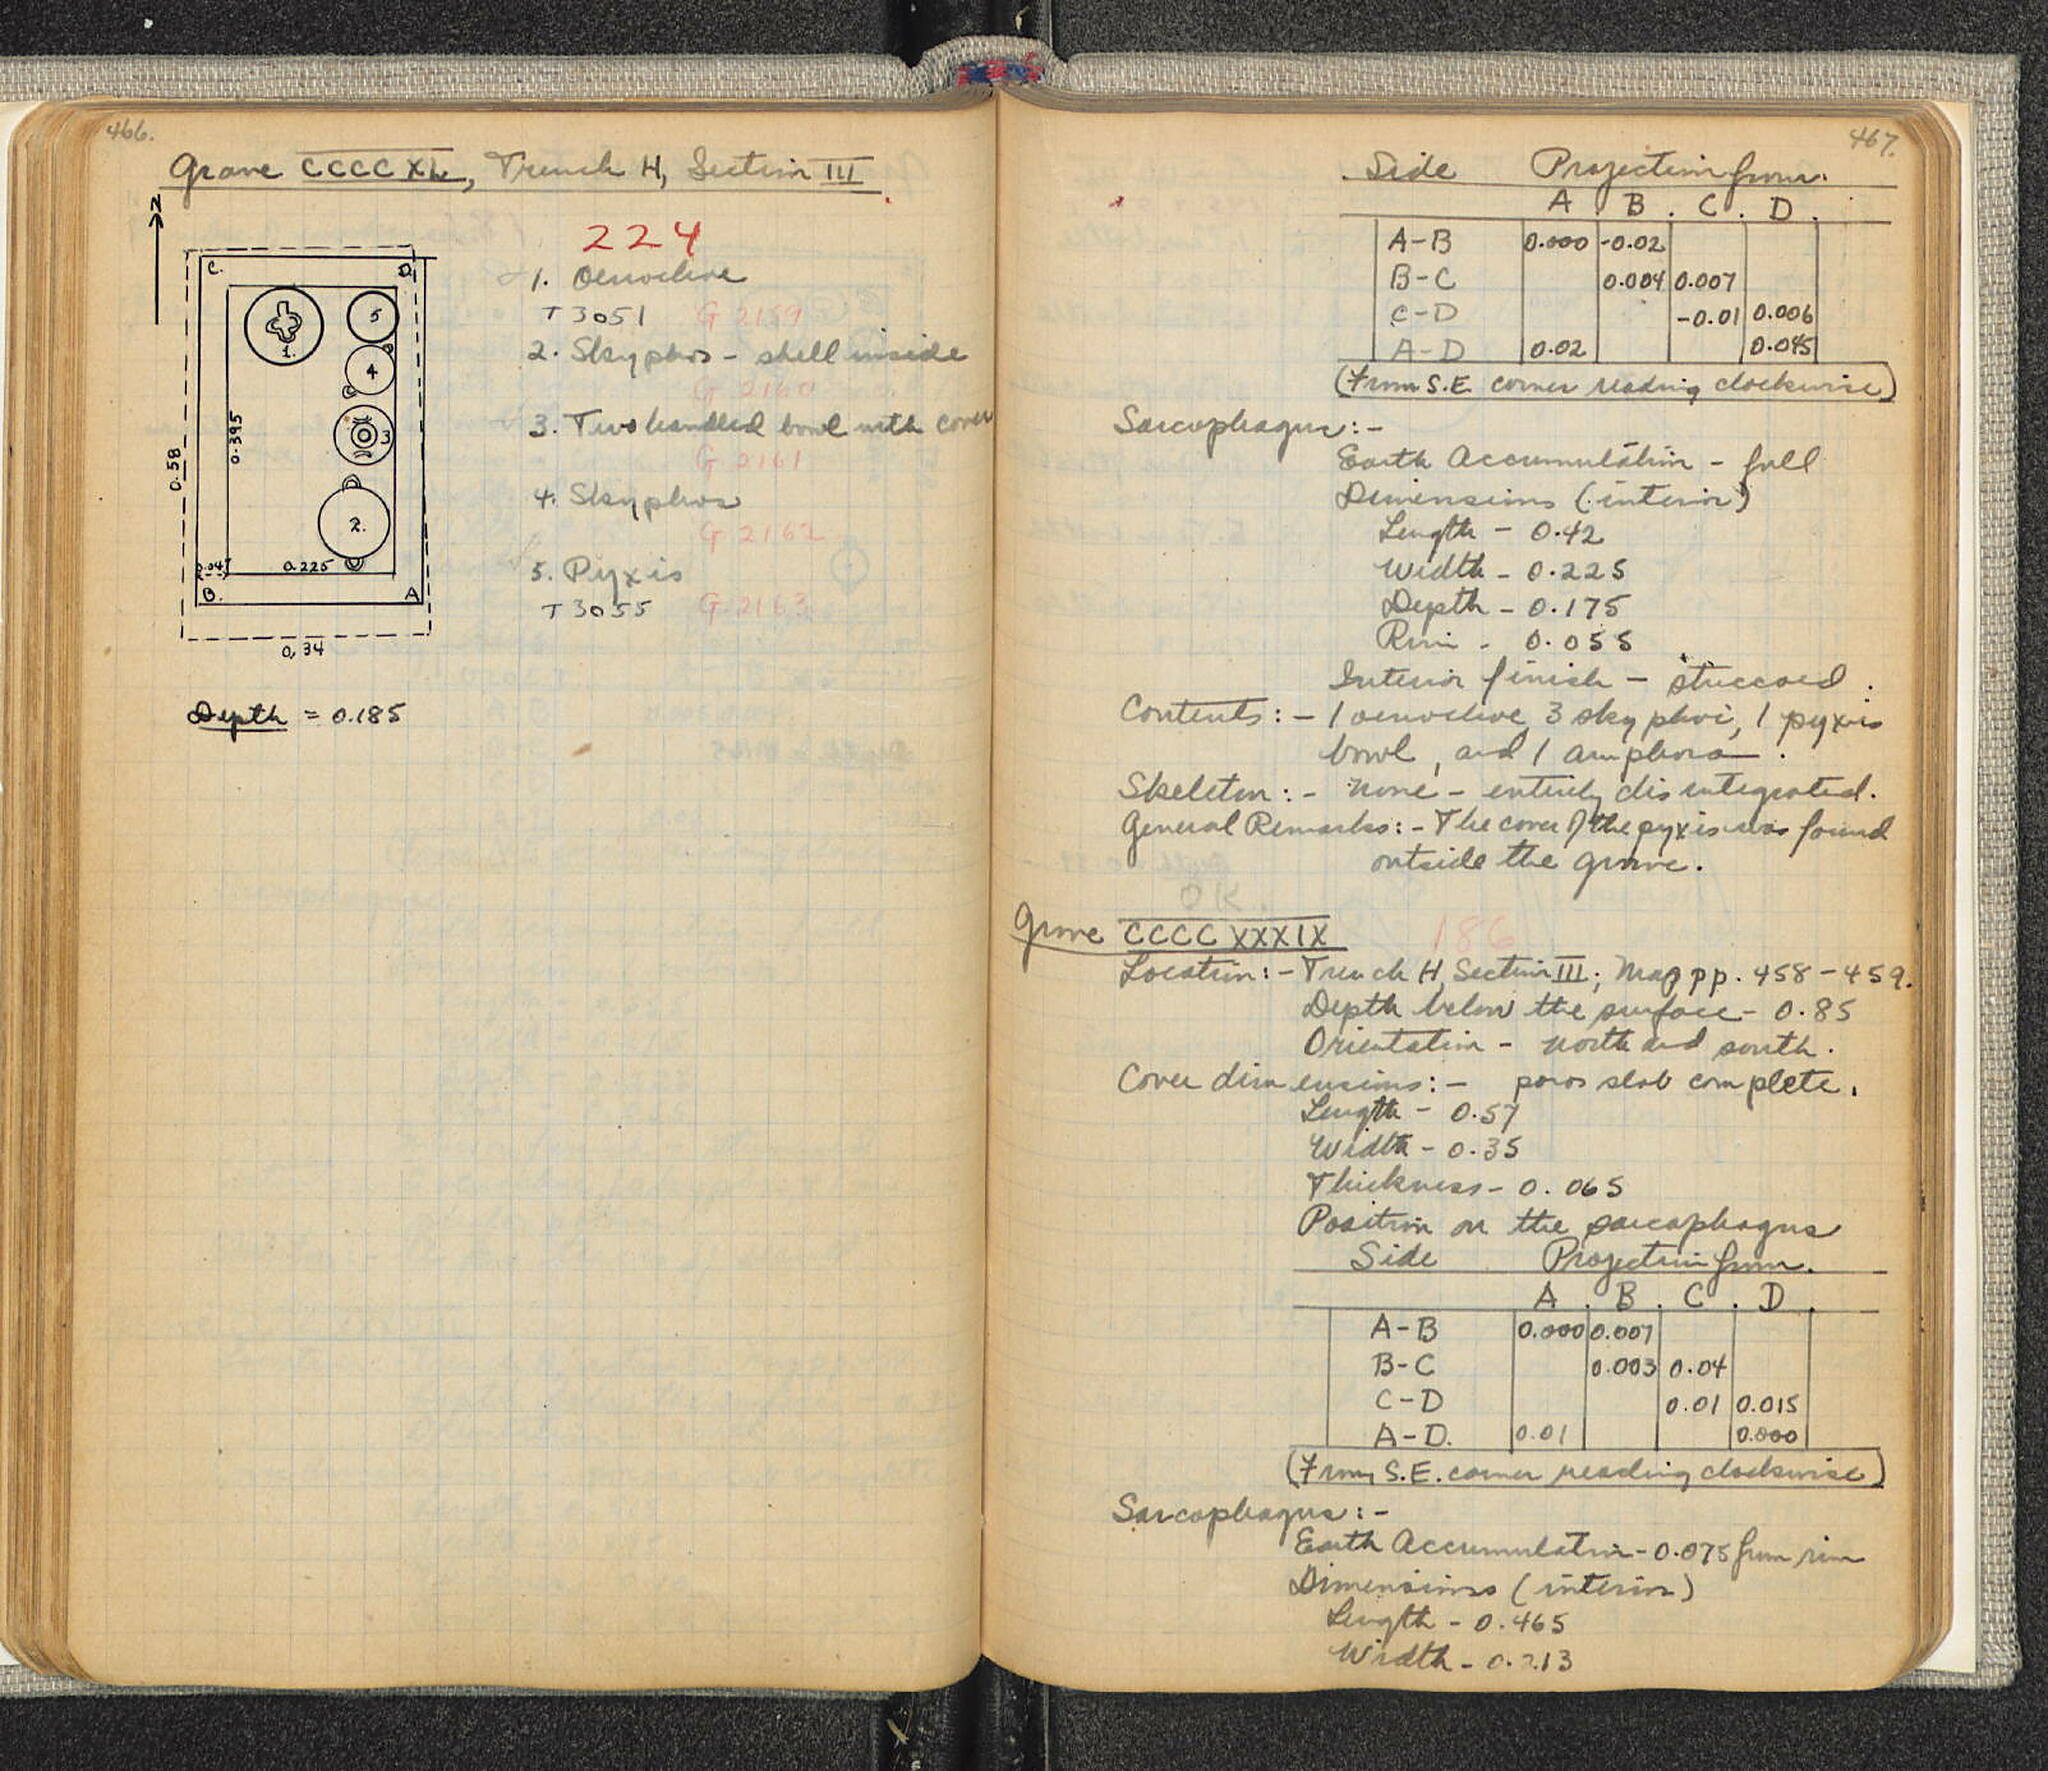 466.
Grave CCCCXL, Trench H, Section III
N
224
1. Oenochoe
T 3051 G 2159
2. Skyphos - shell inside
G 2160
3. Two handled bowl with cover
G 2161
4. Skyphos
G 2162
5. Pyxis
T 3055 G 2163
C. D.
1. 5
4
3
2.
0.58
0.395
0.047 0.225
B. A
0.34
Depth = 0.185
467.
Side Projection from.
A. B. C. D.
A-B 0.000 -0.02
B-C 0.004 0.007
C-D -0.01 0.006
A-D 0.02 0.045
(From S.E. corner reading clockwise)
Sarcophagus:-
Earth Accumulation - full
Dimensions (interior)
Length - 0.42
Width - 0.225
Depth - 0.175
Rim - 0.055
Interior finish - stuccoed.
Contents:- 1 oenochoe, 3 skyphoi, 1 pyxis
bowl, and 1 amphora.
Skeleton:- none - entirely disintegrated.
General Remarks:- The cover of the pyxis was found
outside the grave.
Grave CCCCXXXIX 186
Location:- Trench H, Section III; Map pp. 458-459.
Depth below the surface - 0.85
Orientation - north and south.
Cover dimensions:- poros slab complete.
Length - 0.57
Width - 0.35
Thickness - 0.065
Position on the sarcophagus
Side Projection from.
A. B. C. D.
A-B 0.000 0.007
B-C 0.003 0.04
C-D 0.01 0.015
A-D. 0.01 0.000
(From S.E. corner reading clockwise)
Sarcophagus:-
Earth Accumulation - 0.075 from rim
Dimensions (interior)
Length - 0.465
Width - 0.213